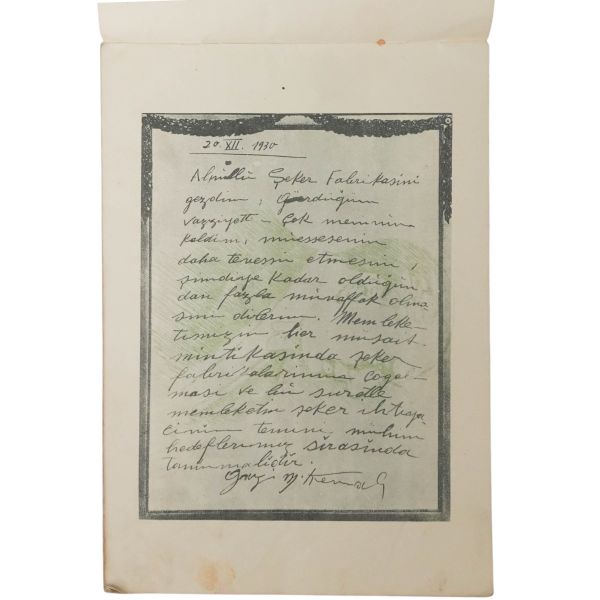 20. XII. 1930
Alpullu Şeker Fabrikasini
gezdim; gördüğüm
vazıyett- çok memnun
kaldım, müessesenin
daha tevessü etmesini,
şimdiye kadar olduğun
dan fazla müvaffak olma
sını dilerim. Memleke-
timizin her müsait
mintikasinda şeker
fabrikalarinin çogal-
masi ve bu suretle
memleketin şeker ihtiya
cinin temini, mühim
hedeflerimiz sirasinda
tanınmalidir.
Gazi M. Kemal